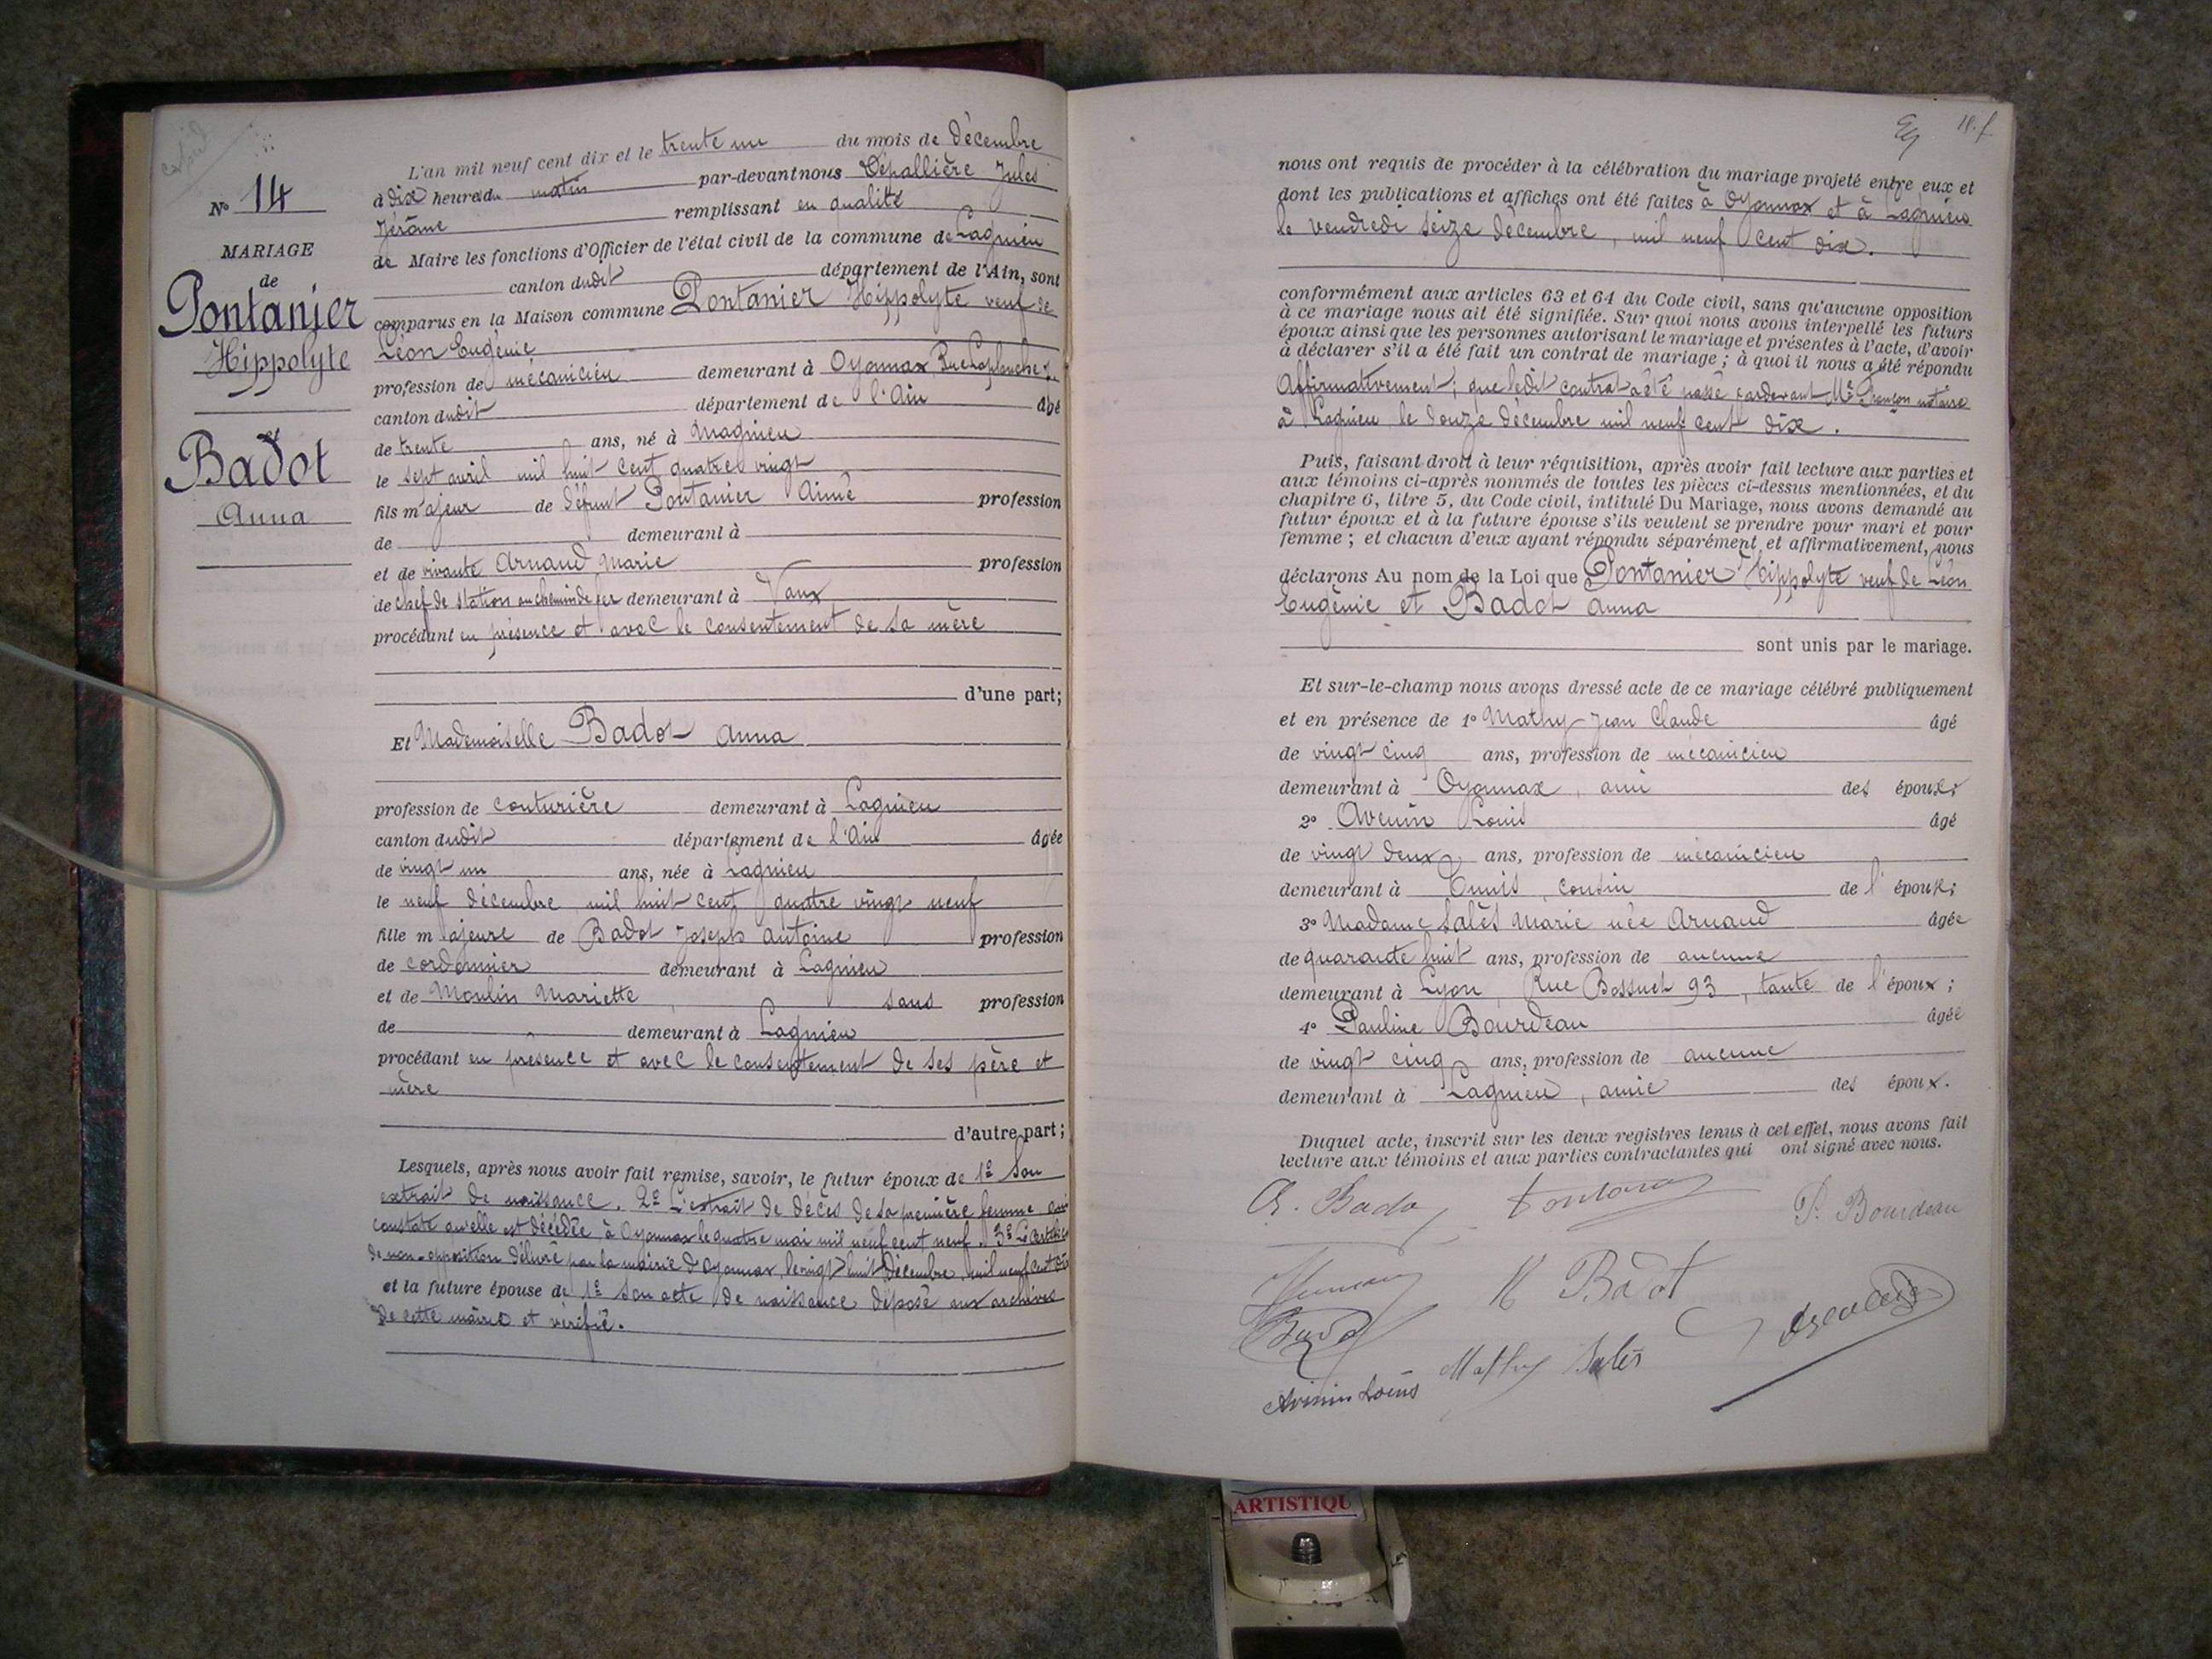 N° 14
MARIAGE
de
Pontanier
Hippolyte
et
Badot
Anna
L'an mil neuf cent dix et le trente un du mois de décembre
à dix heures du matin par-devant nous Dépallière Jules
Jérôme remplissant en qualité
de Maire les fonctions d'Officier de l'état civil de la commune de Lagnieu
canton dudit département de l'Ain, sont
comparus en la Maison commune Pontanier Hippolyte veuf de
Léon Eugénie
profession de mécanicien demeurant à Oyonnax, Rue Laplanche
canton dudit département de l'Ain âgé
de trente ans, né à Magnieu
le sept avril mil huit cent quatre vingt
fils majeur de défunt Pontanier Aimé profession
de demeurant à
et de vivante Arnaud Marie profession
de chef de station au chemin de fer demeurant à Vaux
procédant en présence et avec le consentement de sa mère
d'une part;
Et Mademoiselle Badot Anna
profession de couturière demeurant à Lagnieu
canton dudit département de l'Ain âgée
de vingt un ans, née à Lagnieu
le neuf décembre mil huit cent quatre vingt neuf
fille majeure de Badot Joseph Antoine profession
de cordonnier demeurant à Lagnieu
et de Moulin Mariette sans profession
de demeurant à Lagnieu
procédant en présence et avec le consentement de ses père et
mère
d'autre part;
Lesquels, après nous avoir fait remise, savoir, le futur époux de 1° Son
extrait de naissance. 2° L'extrait de décès de sa première femme qui
constate qu'elle est décédée à Oyonnax le quatre mai mil neuf cent neuf. 3° Le certificat
de non-opposition délivré par la mairie d'Oyonnax, le vingt huit décembre, mil neuf cent dix
et la future épouse de 1° Son acte de naissance déposé aux archives
de cette mairie et vérifié.
18. f.
nous ont requis de procéder à la célébration du mariage projeté entre eux et
dont les publications et affiches ont été faites à Oyonnax et à Lagnieu
le vendredi seize décembre, mil neuf cent dix.
conformément aux articles 63 et 64 du Code civil, sans qu'aucune opposition
à ce mariage nous ait été signifiée. Sur quoi nous avons interpellé les futurs
époux ainsi que les personnes autorisant le mariage et présentes à l'acte, d'avoir
à déclarer s'il a été fait un contrat de mariage; à quoi il nous a été répondu
Affirmativement; que ledit contrat a été passé pardevant Me notaire
à Lagnieu le douze décembre mil neuf cent dix.
Puis, faisant droit à leur réquisition, après avoir fait lecture aux parties et
aux témoins ci-après nommés de toutes les pièces ci-dessus mentionnées, et du
chapitre 6, titre 5, du Code civil, intitulé Du Mariage, nous avons demandé au
futur époux et à la future épouse s'ils veulent se prendre pour mari et pour
femme; et chacun d'eux ayant répondu séparément et affirmativement, nous
déclarons Au nom de la Loi que Pontanier Hippolyte veuf de Léon
Eugénie et Badot Anna
sont unis par le mariage.
Et sur-le-champ nous avons dressé acte de ce mariage célébré publiquement
et en présence de 1° Mathy Jean Claude âgé
de vingt cinq ans, profession de mécanicien
demeurant à Oyonnax, ami des époux;
2° Avenin Louis âgé
de vingt deux ans, profession de mécanicien
demeurant à Tunis, cousin de l'époux;
3° Madame Salès Marie née Arnaud âgée
de quarante huit ans, profession de aucune
demeurant à Lyon, Rue Bossuet 93, tante de l'époux;
4° Pauline Bourdeau âgée
de vingt cinq ans, profession de aucune
demeurant à Lagnieu, amie des époux.
Duquel acte, inscrit sur les deux registres tenus à cet effet, nous avons fait
lecture aux témoins et aux parties contractantes qui ont signé avec nous.
A. Badot Pontanier P. Bourdeau
M Badot
Badot
Mathy Salès
Avenin Louis
ARTISTIQU